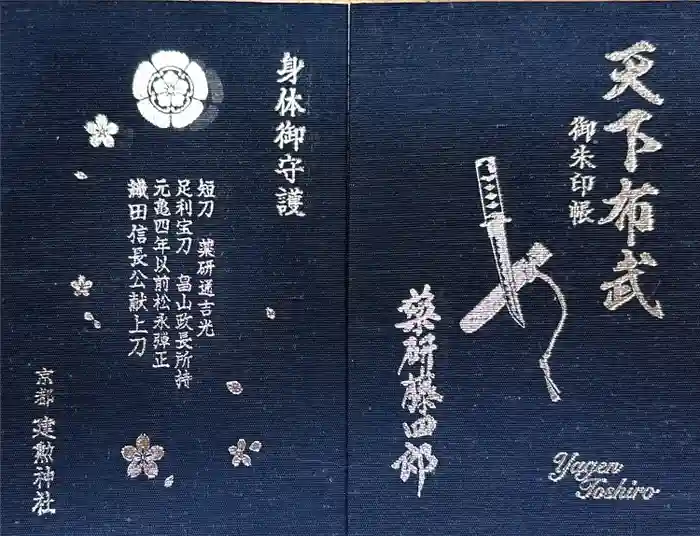 天下布武
御朱印帳
薬研藤四郎
Yagen
Toshiro
身体御守護
短刀 薬研通吉光
足利宝刀 畠山政長所持
元亀四年以前松永弾正
織田信長公献上刀
京都 建勲神社